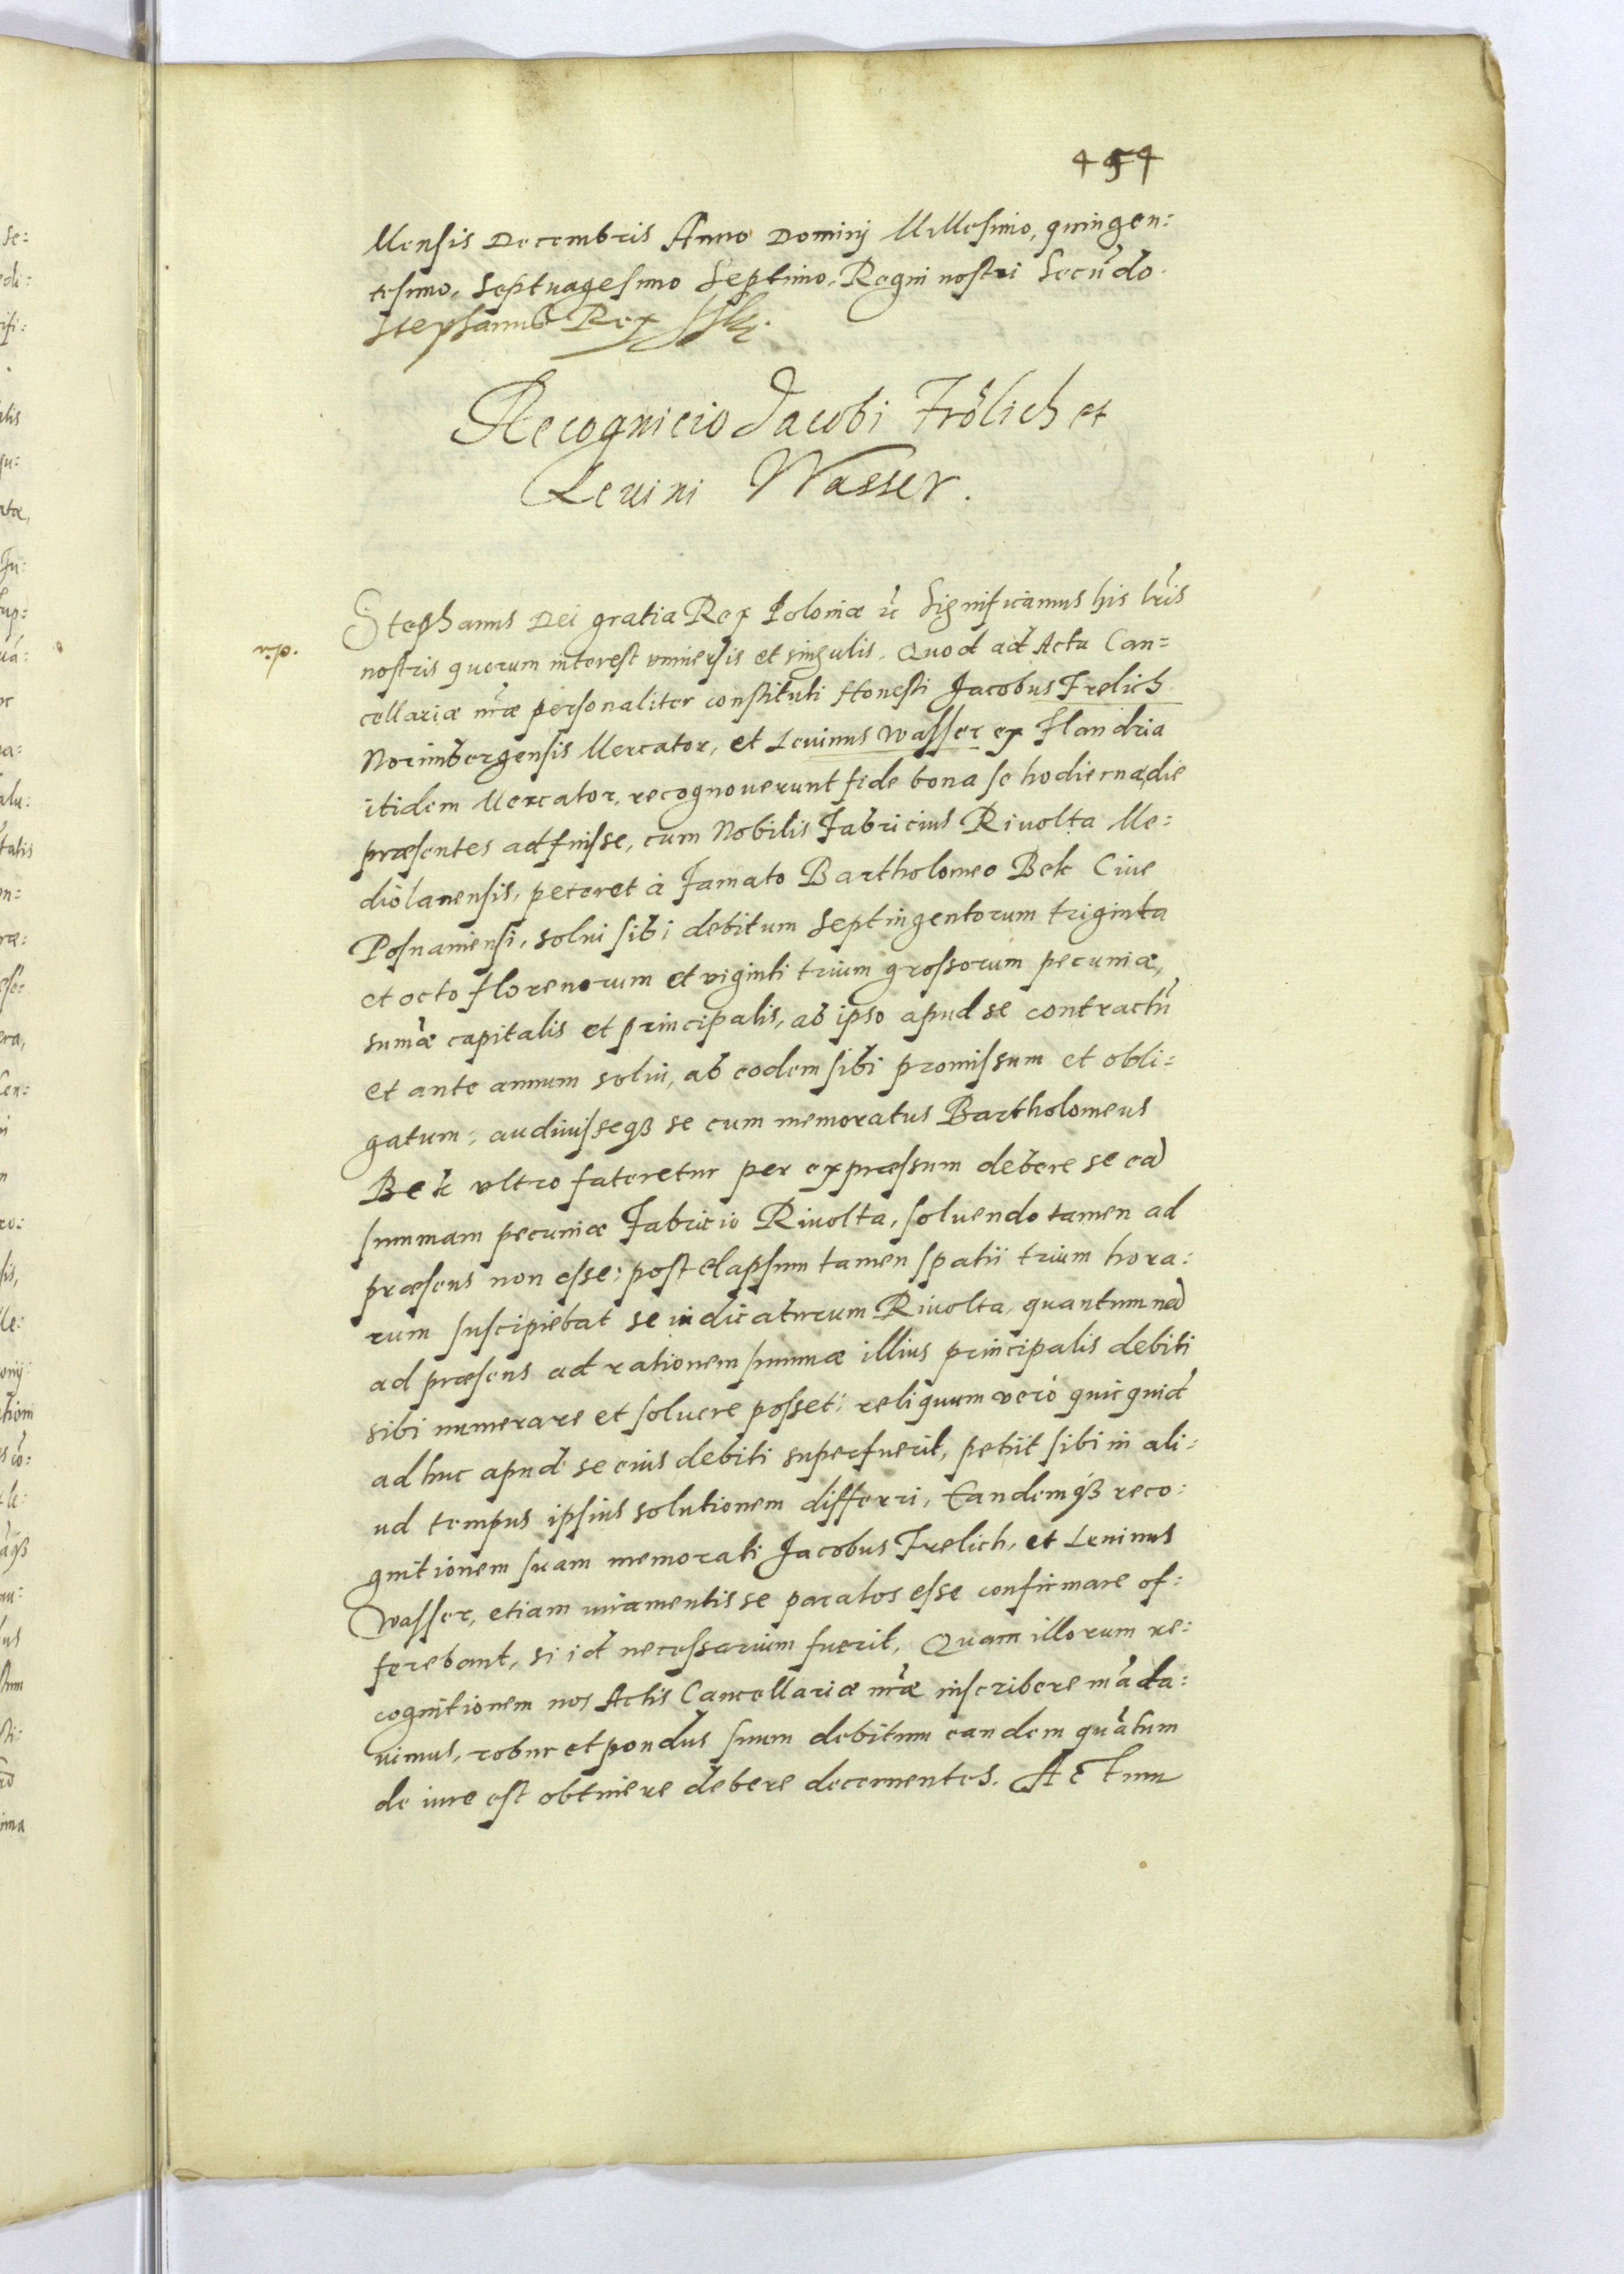 454
Mensis Decembris Anno Dominj Millesimo, quingen:
tesimo, Septuagesimo Septimo, Regni nostri Secūdo.
Stephanus Rex
Recognicio Jacobi Frölich et
Leuini Wasser.
Stephanus Dei gratia Rex Poloniæ etc̃ Significamus his lr̃is
nostris quorum interest vniuersis et singulis. Quod ad Acta Can=
cellariæ nr̃æ personaliter constituti Honesti Jacobus Frelich
Norimbergensis Mercator, et Leuinus Wasser ex Flandria
itidem Mercator, recognouerunt fide bona se hodierna die
præsentes adfuisse, cum Nobilis Fabricius Riuolta Me=
diolanensis, peteret à Famato Bartholomeo Bek Ciue
Posnaniensi, solui sibi debitum Septingentorum triginta
et octo florenorum et viginti trium grossorum pecuniæ,
sum̃æ capitalis et principalis, ab ipso apud se contractũ
et ante annum solui, ab eodem sibi promissum et obli=
gatum; audiuisseqꝫ se cum memoratus Bartholomeus
Bek vltro fateretur per expræssum debere se eã
summam pecuniæ Fabricio Riuolta, soluendo tamen ad
præsens non esse; post elapsum tamen spatii trium hora:
rum suscipiebat se indicaturum Riuolta, quantumnã
ad præsens ad rationem summæ illius principalis debiti
sibi numerare et soluere posset; reliquum verò quicquid
ad huc apud se eius debiti superfuerit, petiit sibi in ali=
ud tempus ipsius solutionem differri, Eandemqꝫ reco:
gnitionem suam memorati Jacobus Frelich, et Leuinus
Wasser, etiam iuramentis se paratos esse confirmare of=
ferebant, si id necessarium fuerit, Quam illorum re:
cognitionem nos Actis Cancellariæ nr̃æ inscribere mãda:
uimus, robur et pondus suum debitum eandem quãtum
de iure est obtinere debere decernentes. Actum